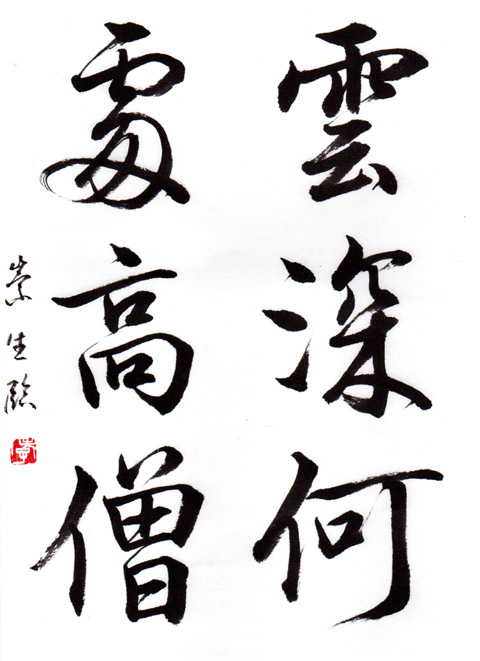 雲深何
處高僧
崇生臨